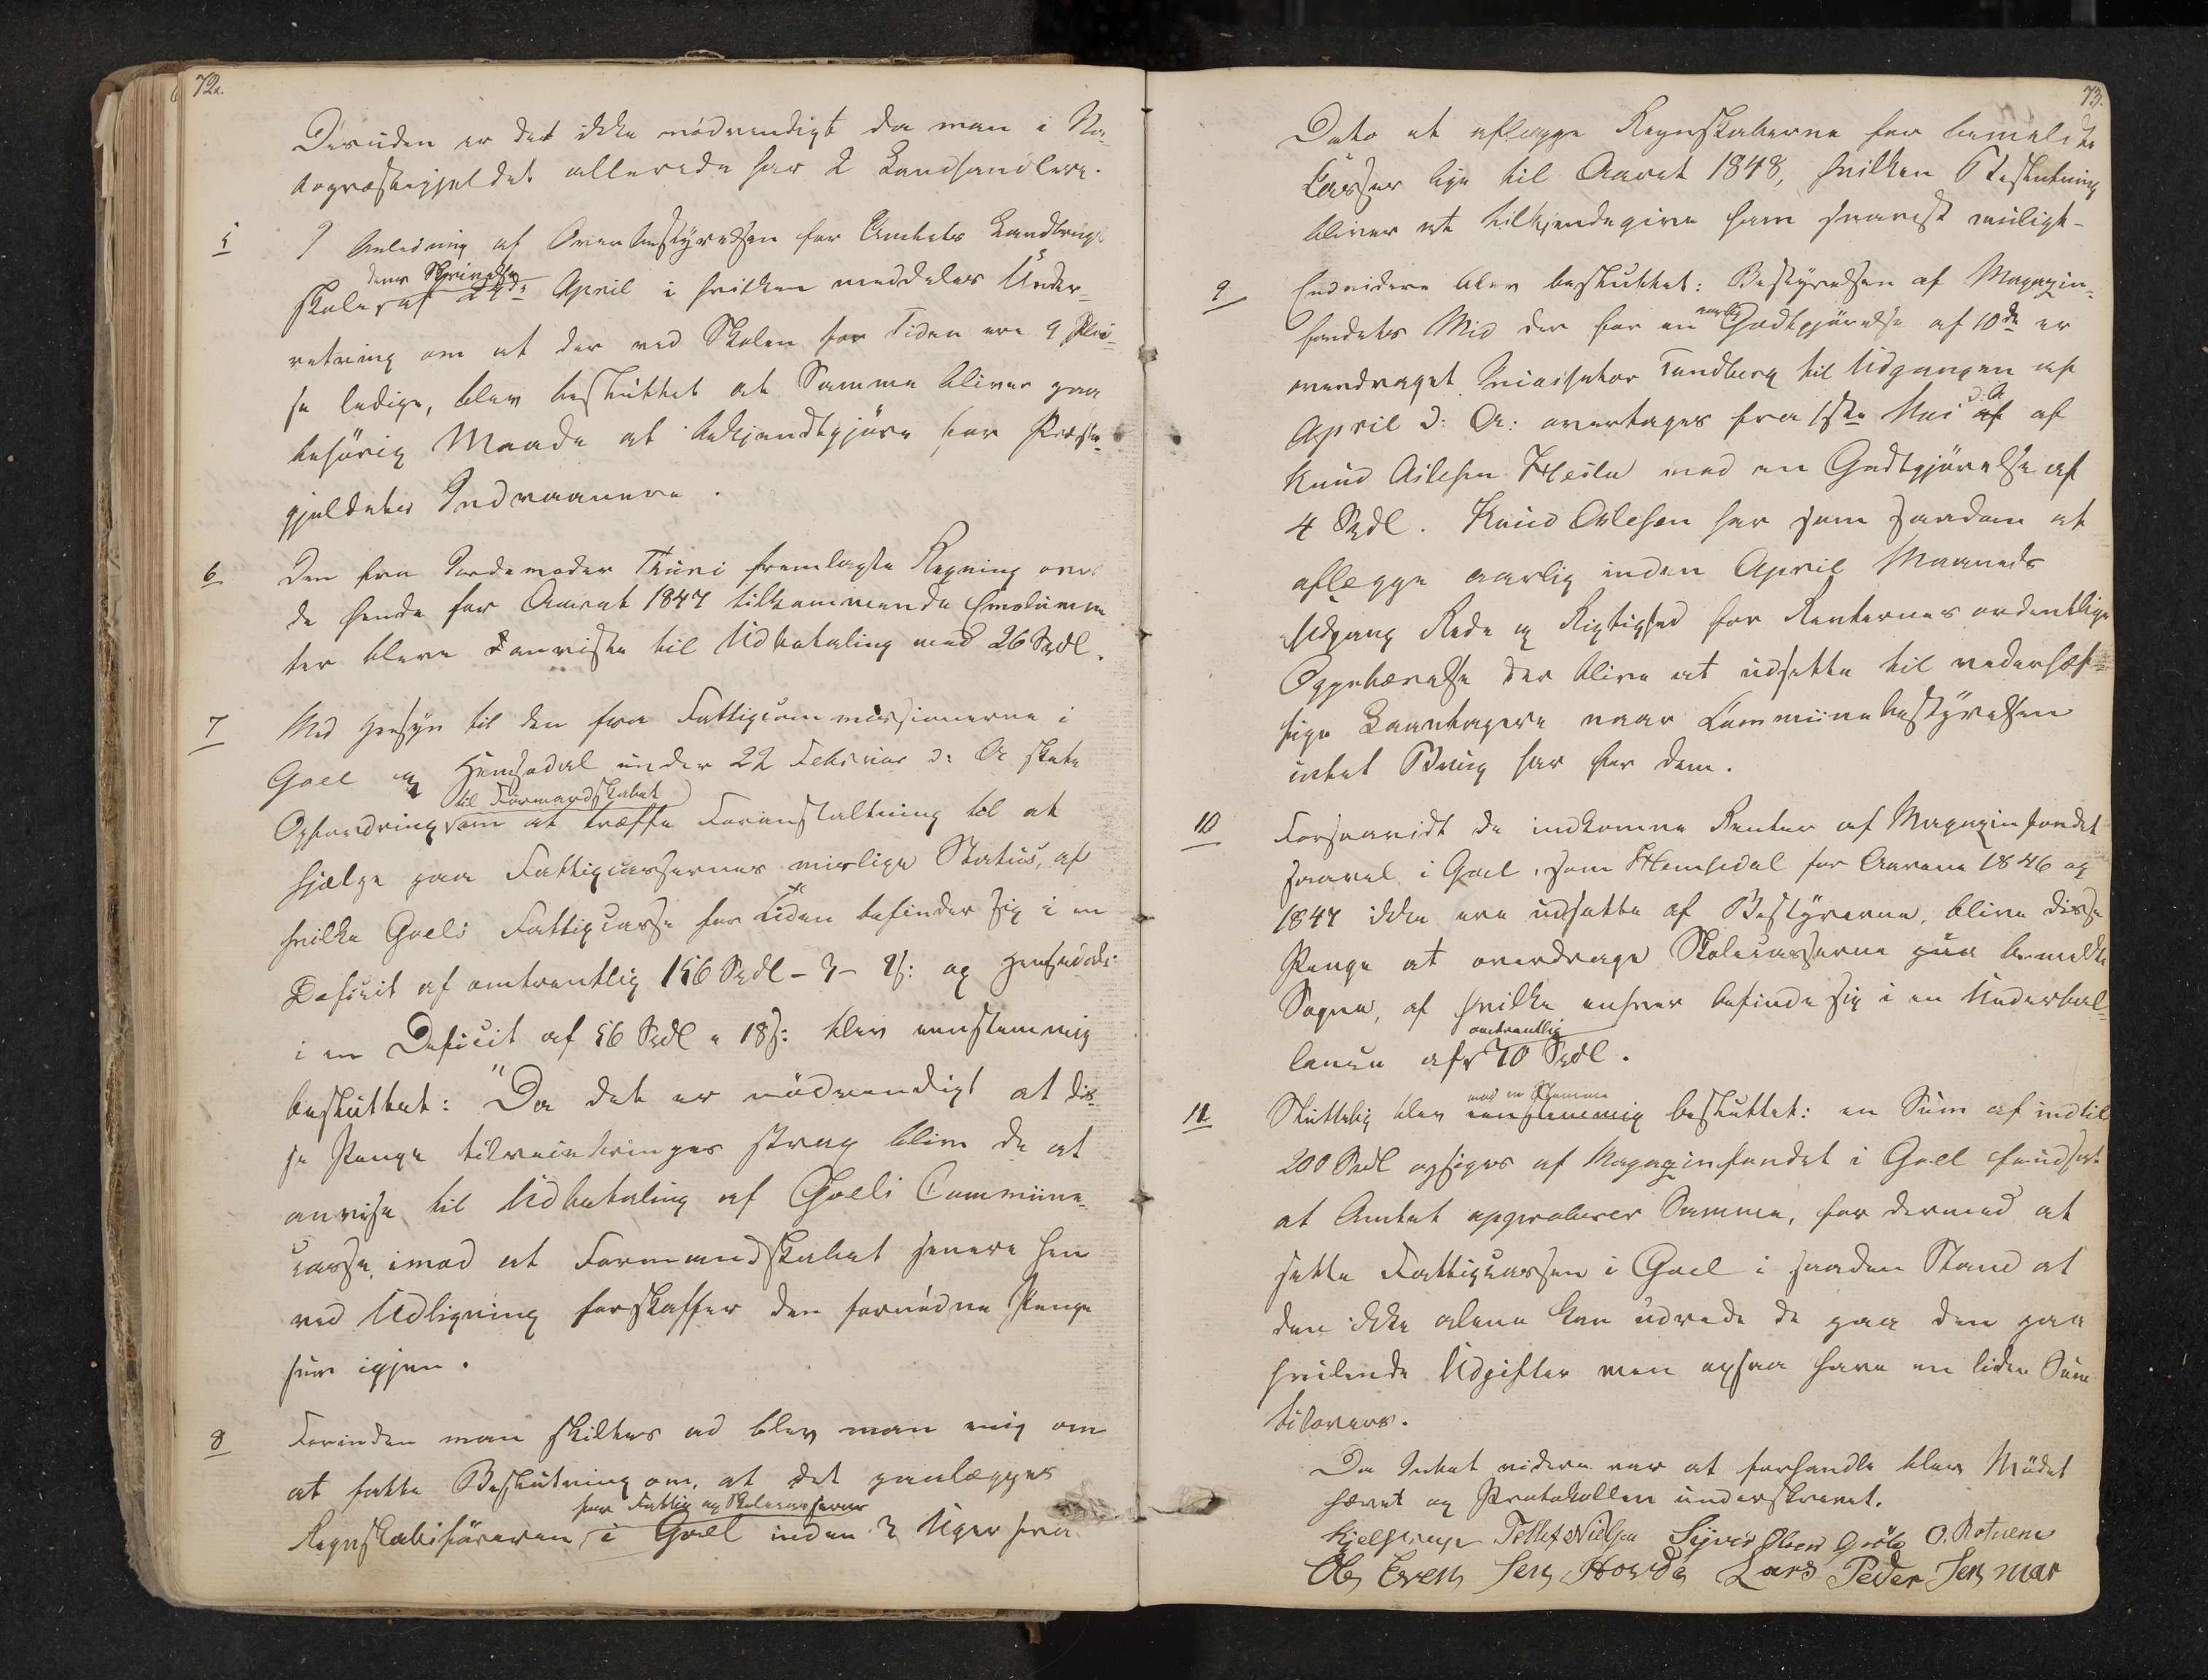 72.
Desuden er det ikke nödvendigt da man i Na-
bopræstegjeldet allerede har 2 Landhandlere.
5 I Anledning af Overbestyrelsen for Amtets Landbrugs
dens Skrivelse
skoles af 24de April i hvilken meddeles Under-
retning om at der ved Skolen for Tiden ere 9 Plad-
se ledige, blev besluttet at Samme bliver paa
behörig Maade at bekjendtgjöre for Præste-
gjeldets Indvaanere.
6 Den fra Jordemoder Thuri fremlagte Regning over
de hende for Aaret 1847 tilkommende Emolumen
ter bleve anviste til Udbetaling med 26 Spdl.
7 Med Hensyn til den fra Fattigcommissionerne i
Goel og Hemsedal under 22 Februar d: A skete
til Formandskabet
Opfordring om at træffe Foranstaltning til at
hjælpe paa Fattigcassernes mislige Status, af
hvilke Goels Fattigcasse for Tiden befinder sig i en
Deficit af omtrentlig 156 Spdl - 3 - 9 s: og Hemsedals
i en Deficit af 56 Spdl " 18 s: blev eenstemmig
besluttet: "Da det er nödvendigt at dis-
se Penge tilveiebringes strax blive de at
anvise til Udbetaling af Goels Commune-
casse, imod at Formandskabet senere hen
ved Udligning forskaffer den fornödne Penge
sum igjen.
8 Forinden man skiltes ad blev man enig om
at fatte Beslutning om, at det paalægges
for Fattig og Skolecasserne
Regnskabsföreren i Goel inden 3 Uger fra
73.
Dato at aflægge Regnskaberne for bemeldte
Casser lige til Aaret 1848, hvilken Beslutning
bliver at tilkjendegive ham snarest muligt-
9 Endvidere blev besluttet: Bestyrelsen af Magazin-
aarlig
fondets Mid der for en Godtgjörelse af 10 dr er
overdraget Tandberg til Udgangen af
d: A
April d: A: overtages fra 1ste Mai af af
Knud Aslesen Heslu med en Godtgjörelse af
4 Spdl. Knud Aslesen har som saadan at
aflegge aarlig inden April Maaneds
Udgang Rede og Rigtighed for Renternes ordentlige
Oppebærelse der blive at udsette til vederhæf-
tige Laantagere naar Communebestyrelsen
intet Brug har for dem.
10 Forsaavidt de indkomne Renter af Magazinfondet
saavel i Goel, som Hemsedal for Aarene 1846 og
1847 ikke ere udsatte af Bestyrerne, blive disse
Penge at overdrage Skolecasserne paa bemeldte
Sogne, af hvilke enhver befinde sig i en Underbal-
omtrentlig
lance af 70 Spdl.
med en Stemme
11 Sluttelig blev eenstemmig besluttet: en Sum af indtil
200 Spdl opsiges af Magazinfondet i Goel forudsat
at Amtet approberer Samme, for dermed at
sette Fattigcassen i Goel i saadan Stand at
den ikke alene kan udrede de paa den paa
hvilende Udgifter men ogsaa have en liden Sum
tilovers.
Da Intet videre var at forhandle blev Mödet
hævet og Protokollen underskrevet.
Kjelstrup Tollef Nielsen Syver Olsen Gröto O. Rotneme
Ole Evens Jens Hovde Lars Peder Jens mar